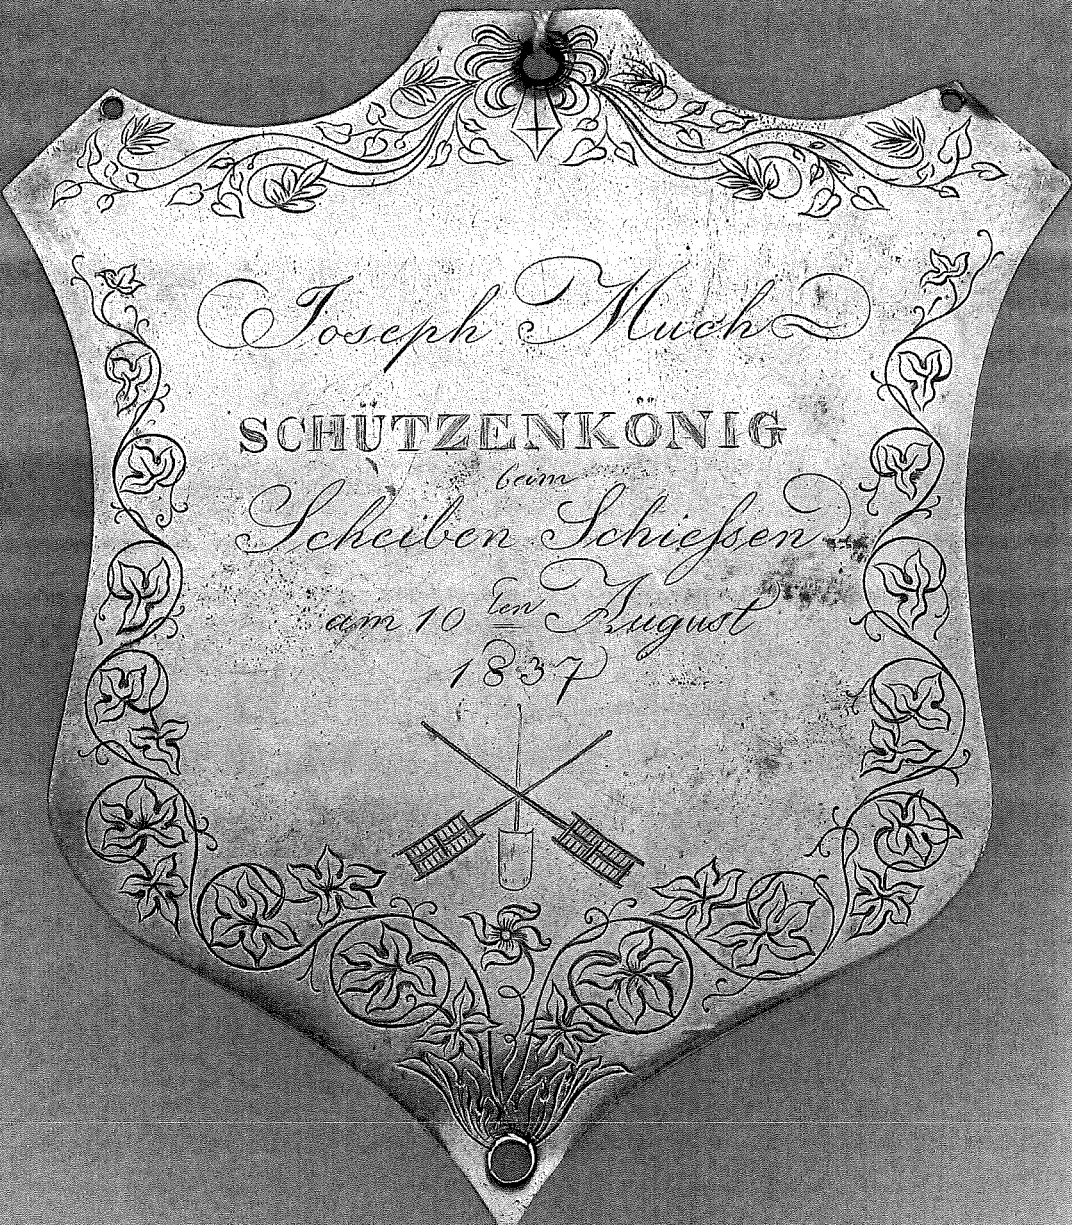 Joseph Much
SCHÜTZENKÖNIG
beim
Scheiben Schieſsen
am 10 ten August
1837